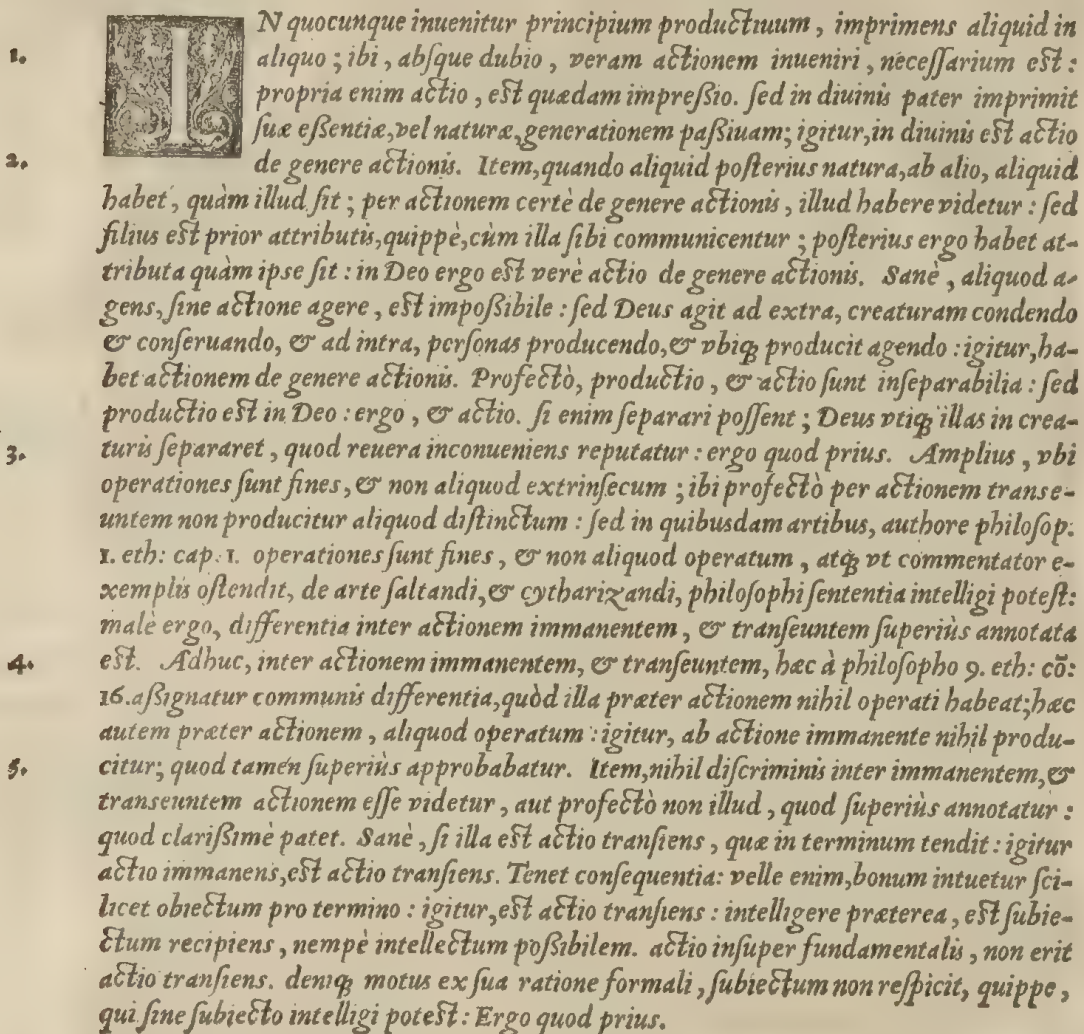 IN quocunque inuenitur principium productiuum, imprimens aliquid in
1. aliquo; ibi, abſque dubio, veram actionem inueniri, neceſſarium est:
propria enim actio, est quædam impreßio. ſed in diuinis pater imprimit
ſuæ eßentiæ, vel naturæ, generationem paßiuam; igitur, in diuinis est actio
2. de genere actionis. Item, quando aliquid poſterius natura, ab alio, aliquid
habet, quàm illud ſit; per actionem certè de genere actionis, illud habere videtur: ſed
filius est prior attributis, quippè, cùm illa ſibi communicentur; poſterius ergo habet at-
tributa quàm ipse ſit: in Deo ergo est verè actio de genere actionis. Sanè, aliquod a-
gens, ſine actione agere, est impoßibile: ſed Deus agit ad extra, creaturam condendo
& conſeruando, & ad intra, perſonas producendo, & vbiq; producit agendo: igitur, ha-
bet actionem de genere actionis. Profectò, productio, & actio ſunt inſeparabilia: ſed
productio est in Deo: ergo, & actio. ſi enim ſeparari poſſent; Deus vtiq; illas in crea-
3. turis ſepararet, quod reuera inconueniens reputatur: ergo quod prius. Amplius, vbi
operationes ſunt fines, & non aliquod extrinſecum; ibi profectò per actionem tranſe-
untem non producitur aliquod diſtinctum: ſed in quibusdam artibus, authore philoſop:
1. eth: cap. 1. operationes ſunt fines, & non aliquod operatum, atq; vt commentator e-
xemplis oſtendit, de arte ſaltandi, & cytharizandi, philoſophi ſententia intelligi poteſt:
malè ergo, differentia inter actionem immanentem, & tranſeuntem ſuperiùs annotata
4. est. Adhuc, inter actionem immanentem, & tranſeuntem, hæc à philoſopho 9. eth: cõ:
16. aßignatur communis differentia, quòd illa præter actionem nihil operati habeat; hæc
autem præter actionem, aliquod operatum: igitur, ab actione immanente nihil produ-
5. citur; quod tamen ſuperiùs approbabatur. Item, nihil diſcriminis inter immanentem, &
transeuntem actionem eſſe videtur, aut profectò non illud, quod ſuperiùs annotatur:
quod clarißimè patet. Sanè, ſi illa est actio tranſiens, quæ in terminum tendit: igitur
actio immanens, est actio tranſiens. Tenet conſequentia: velle enim, bonum intuetur ſci-
licet obiectum pro termino: igitur, est actio tranſiens: intelligere præterea, est ſubie-
ctum recipiens, nempè intellectum poßibilem. actio inſuper fundamentalis, non erit
actio tranſiens. deniq; motus ex ſua ratione formali, ſubiectum non reſpicit, quippe,
qui ſine ſubiecto intelligi potest: Ergo quod prius.